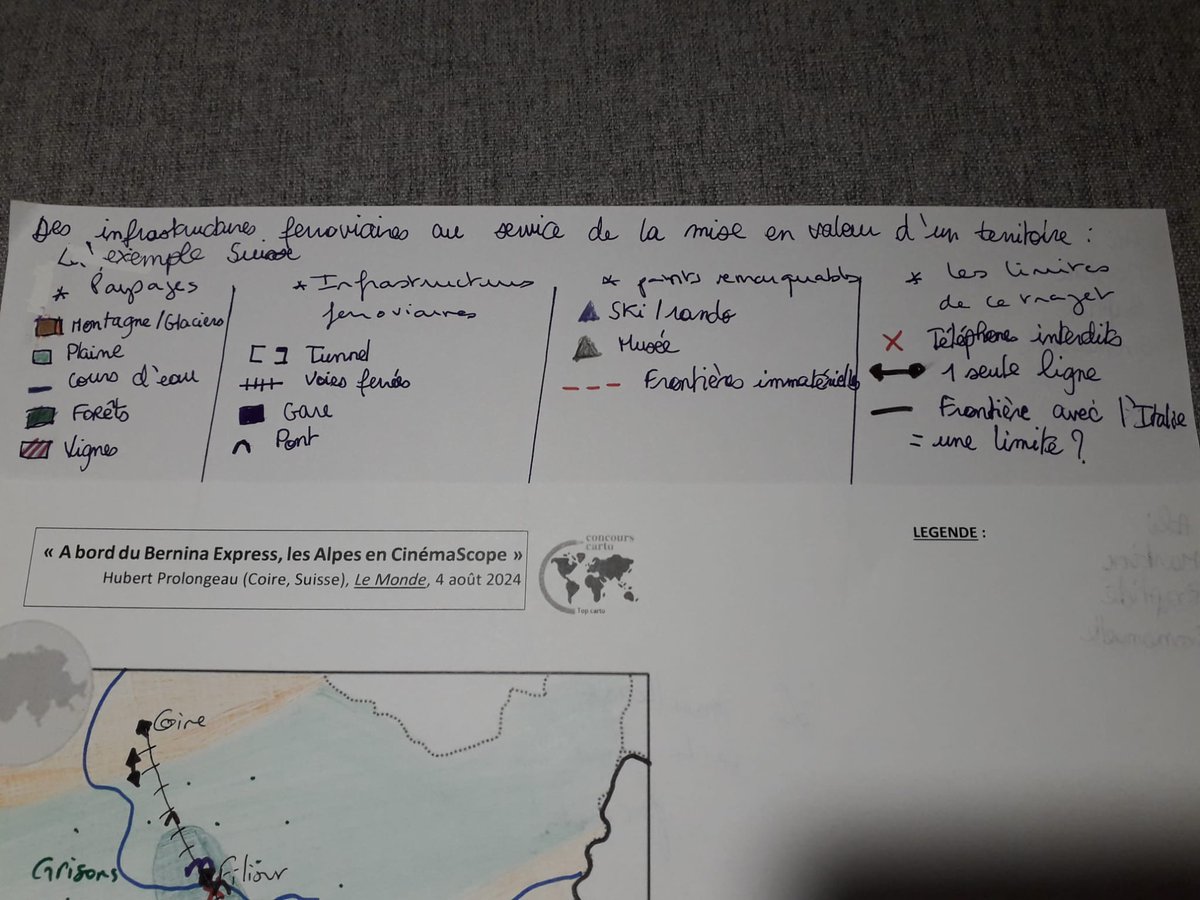 Des infrastructures ferroviaires au service de la mise en valeur d'un territoire :
L'exemple Suisse
* Paysages
Montagne/Glaciers
Plaine
Cours d'eau
Forêts
Vignes
* Infrastructures
ferroviaires
Tunnel
Voies ferrés
Gare
Pont
* points remarquables
Ski/rando
Musée
Frontières immatérielles
* Les limites
de ce trajet
Téléphones interdits
1 seule ligne
Frontière avec l'Italie
= une limite ?
« A bord du Bernina Express, les Alpes en CinémaScope »
Hubert Prolongeau (Coire, Suisse), Le Monde, 4 août 2024
concours
carto
Top carto
LEGENDE :
Coire
Grisons